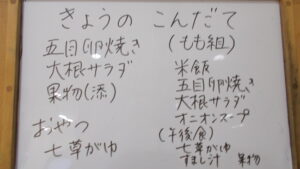 きょうの こんだて
五目卵焼き
大根サラダ
果物(添)
おやつ
七草がゆ
(もも組)
米飯
五目卵焼き
大根サラダ
オニオンスープ
(午後食)
七草がゆ
すまし汁 果物